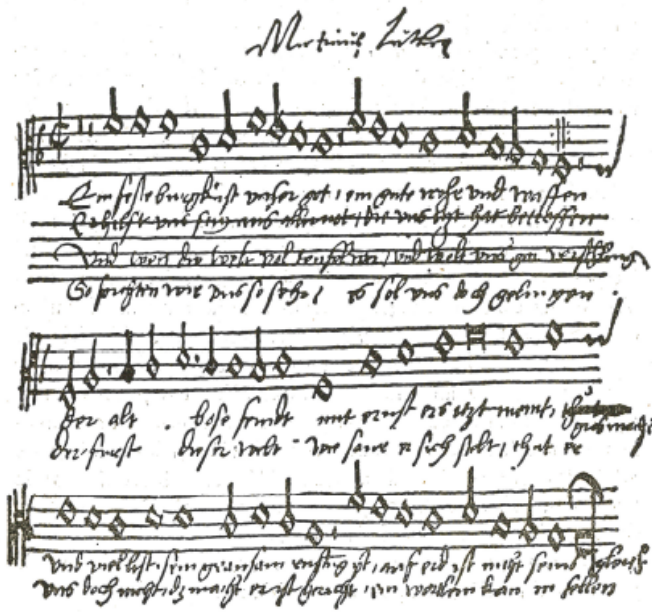 Martinus Luther
Ein feste burg ist unser got, ein gute wehr und waffen
Er hilft uns frey aus aller not, die uns itzt hat betroffen
Und wen die welt vol teuffel wer, und wolt uns gar verschling
So furchten wir uns so sehr, es sol uns doch gelingen
der alt bose feindt mit ernst ers itzt meint, gros macht
der furst dieser welt wie saur er sich stelt, thut er
und viel list sein grausam rustung ist, auf erd ist nicht seins gleich
uns doch nicht, dz macht er ist gericht, ein wortlein kan in fellen